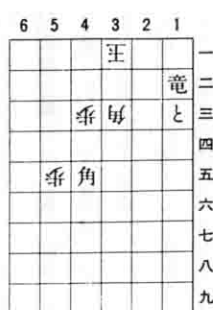 6 5 4 3 2 1
王 一
竜 二
歩 角 と 三
四
歩 角 五
六
七
八
九